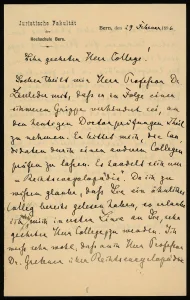 Juristische Fakultät
der
Hochschule Bern.
Bern, den 29 Februar 1896
Sehr geehrter Herr College!
Soeben teilt mir Herr Professor Dr
Zeerleder mit, dass er in Folge einer
schweren Grippe verhindert sei, an
den heutigen Doctorprüfungen Theil
zu nehmen. Er bittet mich die Can-
didaten durch einen anderen Collegen
prüfen zu lassen. Es handelt sich um
„Rechtsencyclopädie". Da ich zu
wissen glaube, dass Sie ein ähnliches
Colleg bereits gelesen haben, so erlaube
ich mich in erster Linie an Sie, sehr
geehrter Herr College zu wenden. Ich
muss sehr, dass auch Herr Professor
Dr. über Rechtsencyclopädie